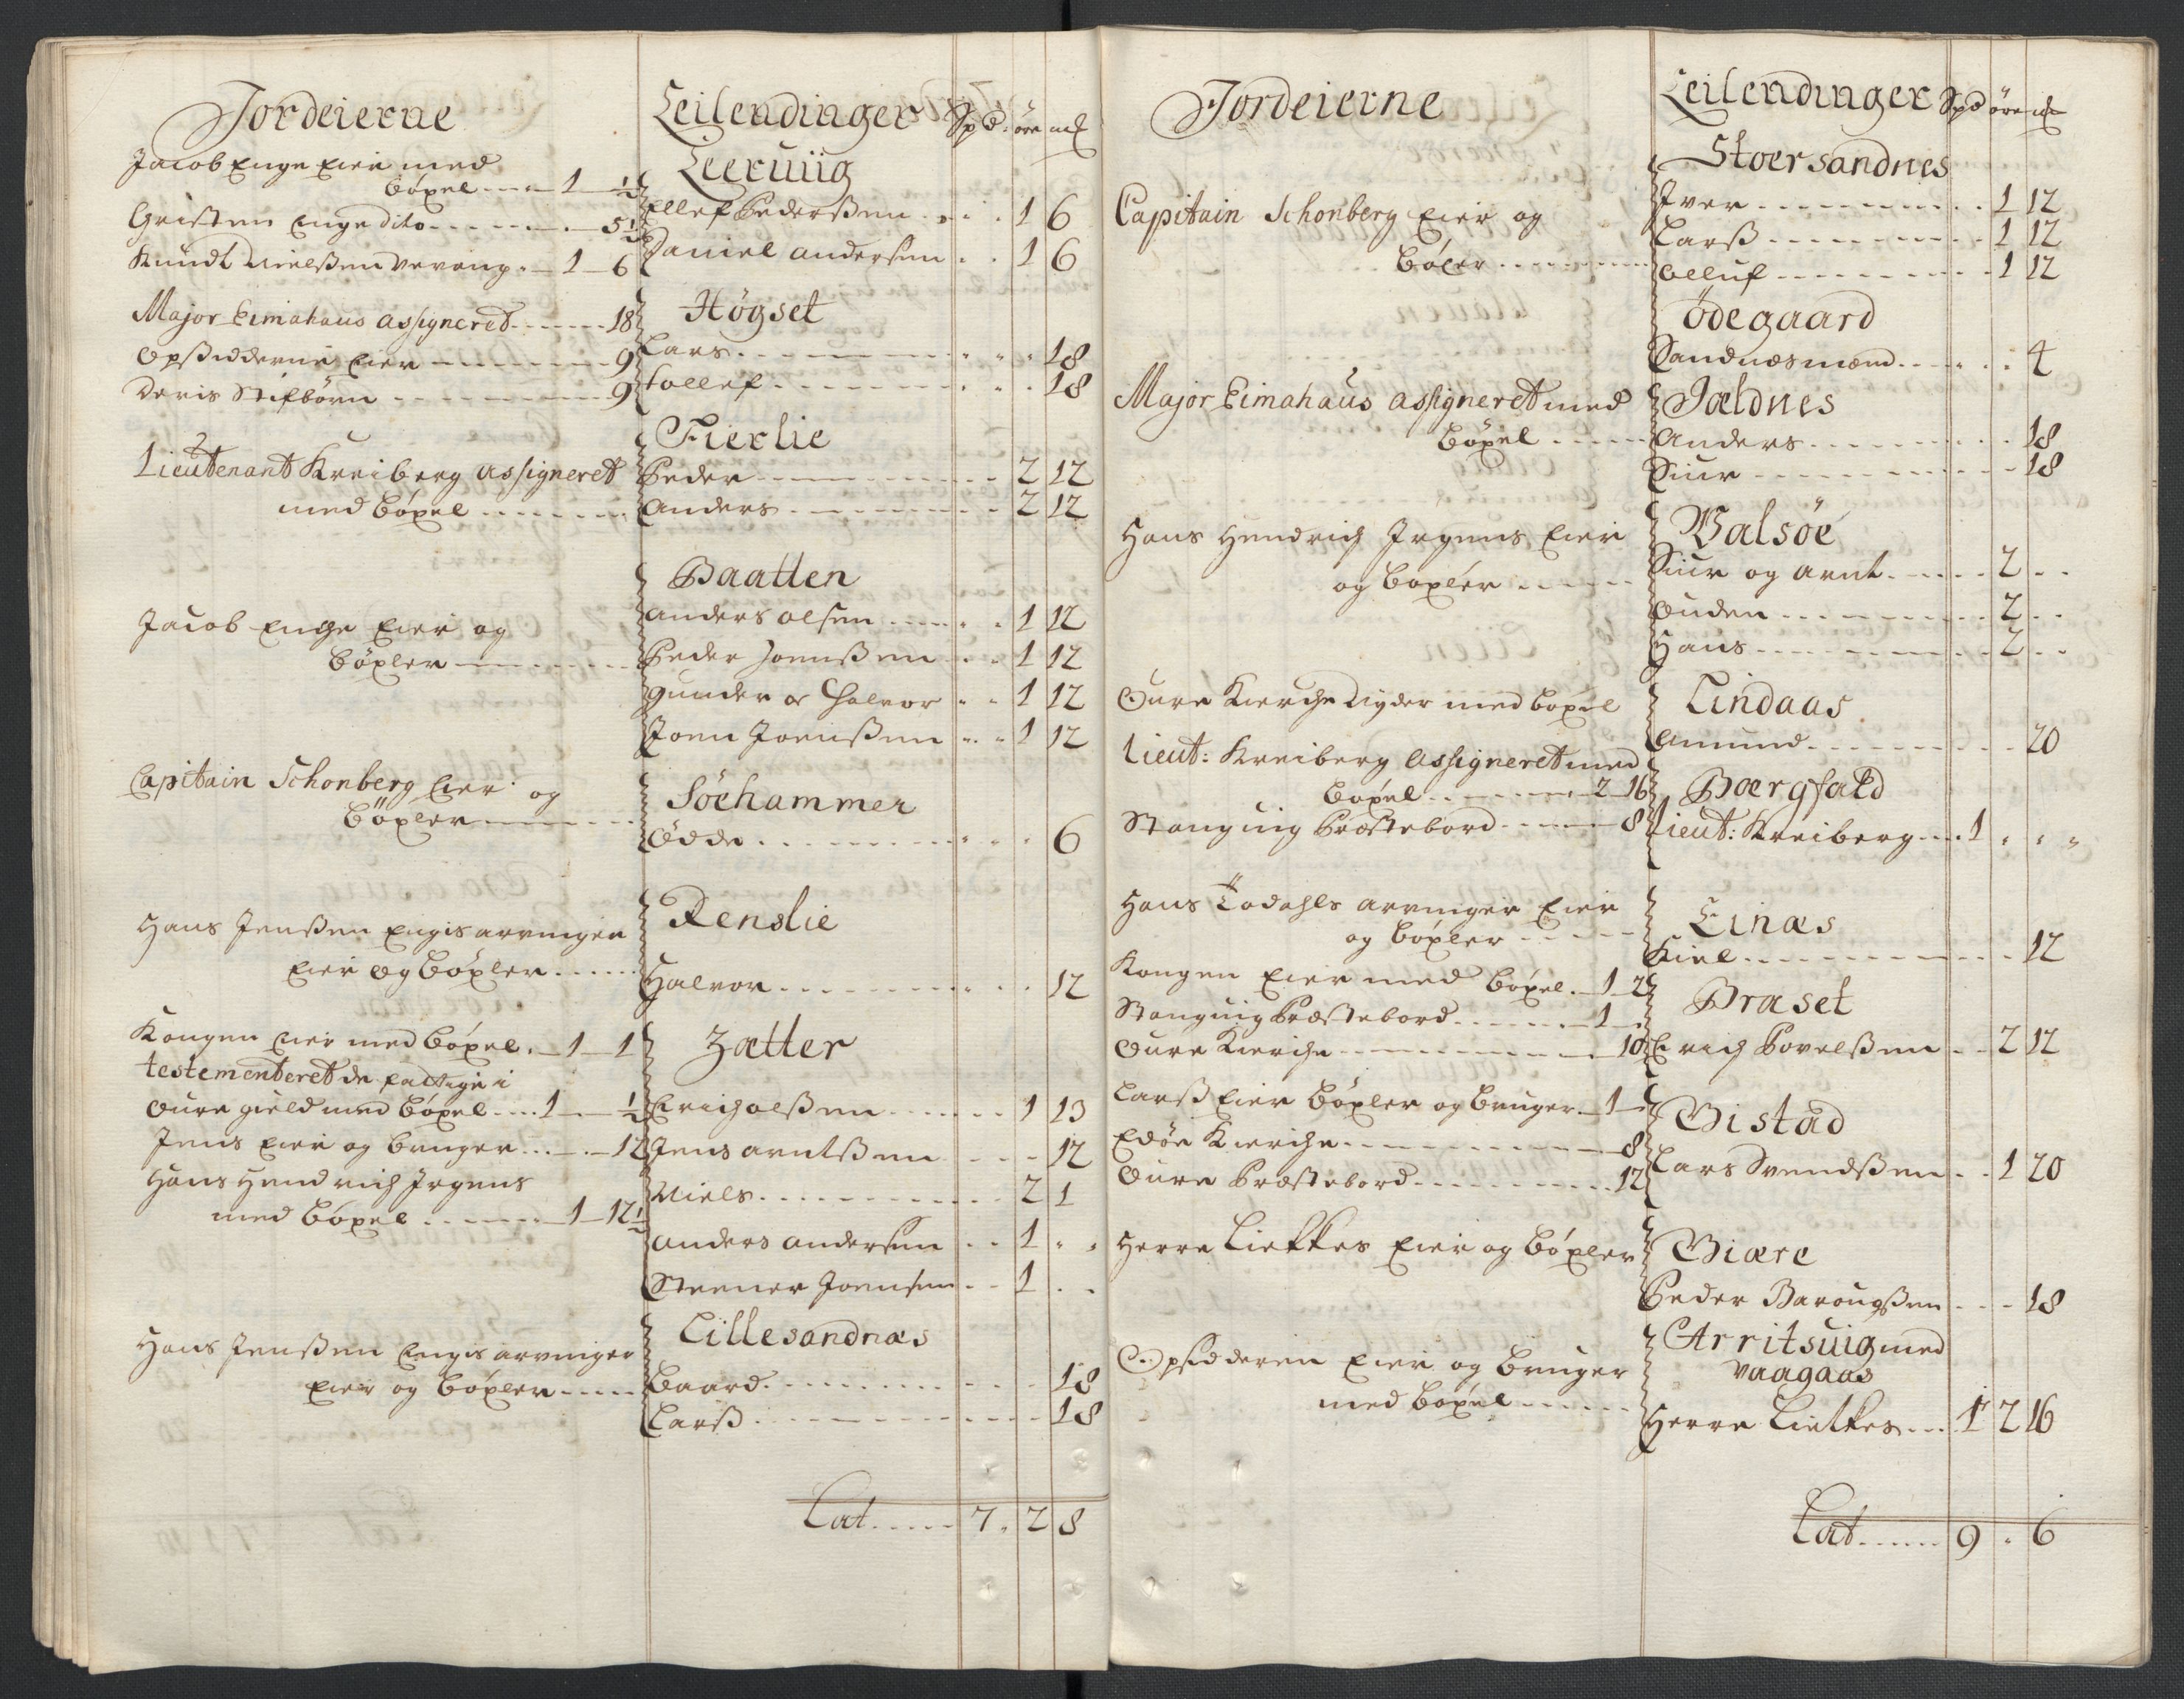 Jordeierne
Jacob Enge Eier med
böxel ---- 1 - ½
Christen Enge dito ------- 5½
Knudt Nielßen Vevang - 1 - 6
Major Eimahaus assigneret ------ 18
Opsidderne Eier -------- 9
Deris Stifbörn -------- 9
Lieutenant Kreiberg assigneret
med böxel -------
Jacob Enge Eier og
böxler -------
Capitain Schonberg Eier og
böxler -------
Hans Jenßen Engis arvinger
Eier og böxler -----
Kongen Eier med böxel. - 1 - 1
testementeret de fattige i
Oure gield med böxel ---- 1 - ½
Jens Eier og bruger ---- 12
Hans Hendrich Jrgens
med böxel ------ 1 - 12½
Hans Jenßen Engis arvinger
Eier og böxler -----
Leilendinger Spd. öre mk
Leeruiig
Ellef Pederßen . . . 1 6
Daniel andersen . . 1 6
Högset
Lars ------- 18
tollef ------- 18
Fierlie
Peder ------- 2 12
Anders ------- 2 12
Baatten
anders olsen ---- 1 12
Peder Joenßen . . 1 12
gunder og Halvor . . 1 12
Joen Joenßen . . 1 12
Söehammer
Odde ------- 6
Renslie
Halvor ------- 12
Zætter
Erich olßen ------ 1 13
Jens arntßen ---- 12
Niels ------- 2 1
anders andersen . . 1 . .
Steener Joensen . . 1 . .
Lillesandnæs
baard ------- 18
Larß ------- 18
Lat ----- 7 . 2 8
Jordeierne
Capitain Schonberg Eier og
böxler -------
Major Eimahaus assigneret med
böxel -----
Hans Hendrich Jrgens Eier
og böxler -----
Oure Kierche Liyder med böxel
Lieut: Kreiberg assigneret med
böxel ------ 2 - 16
Stanguig Præstebord ----- 8
Hans Lodahls arvinger Eier
og böxler -----
Kongen Eier med böxel. - 1 - 2
Stanguig Præstebord ------ 1 -
Oure Kierche ------- 10
Larß Eier böxler og bruger. - 1 -
Edöe Kierche ------- 8
Oure Præstebord ------- 12
Herre Liekkes Eier og böxler
Opsidderen Eier og bruger
med böxel ------
Leilendinger Spd öre mk
Stoersandnes
Iver ------- 1 12
Larß ------- 1 12
olluf ------- 1 12
Ödegaard
Sandnæsmænd ----- 4
Jældnes
Anders ------- 18
Siur ------- 18
Valsöe
Siur og arnt ----- 2 . .
Ouden ------- 2 . .
Hans ------- 2 . .
Lindaas
Amund ------- 20
Bærgfald
Lieut: Kreiberg --- 1 . . .
Linæs
Kiel ------- 12
Bræset
Erich Povelßen . . 2 12
Bistad
Lars Svendßen . . 1 20
Biære
Peder Barougßen . . . 18
Arritsuig med
vaagaas
Herre Liekkes --- 1 2 16
Lat ----- 9 . 6